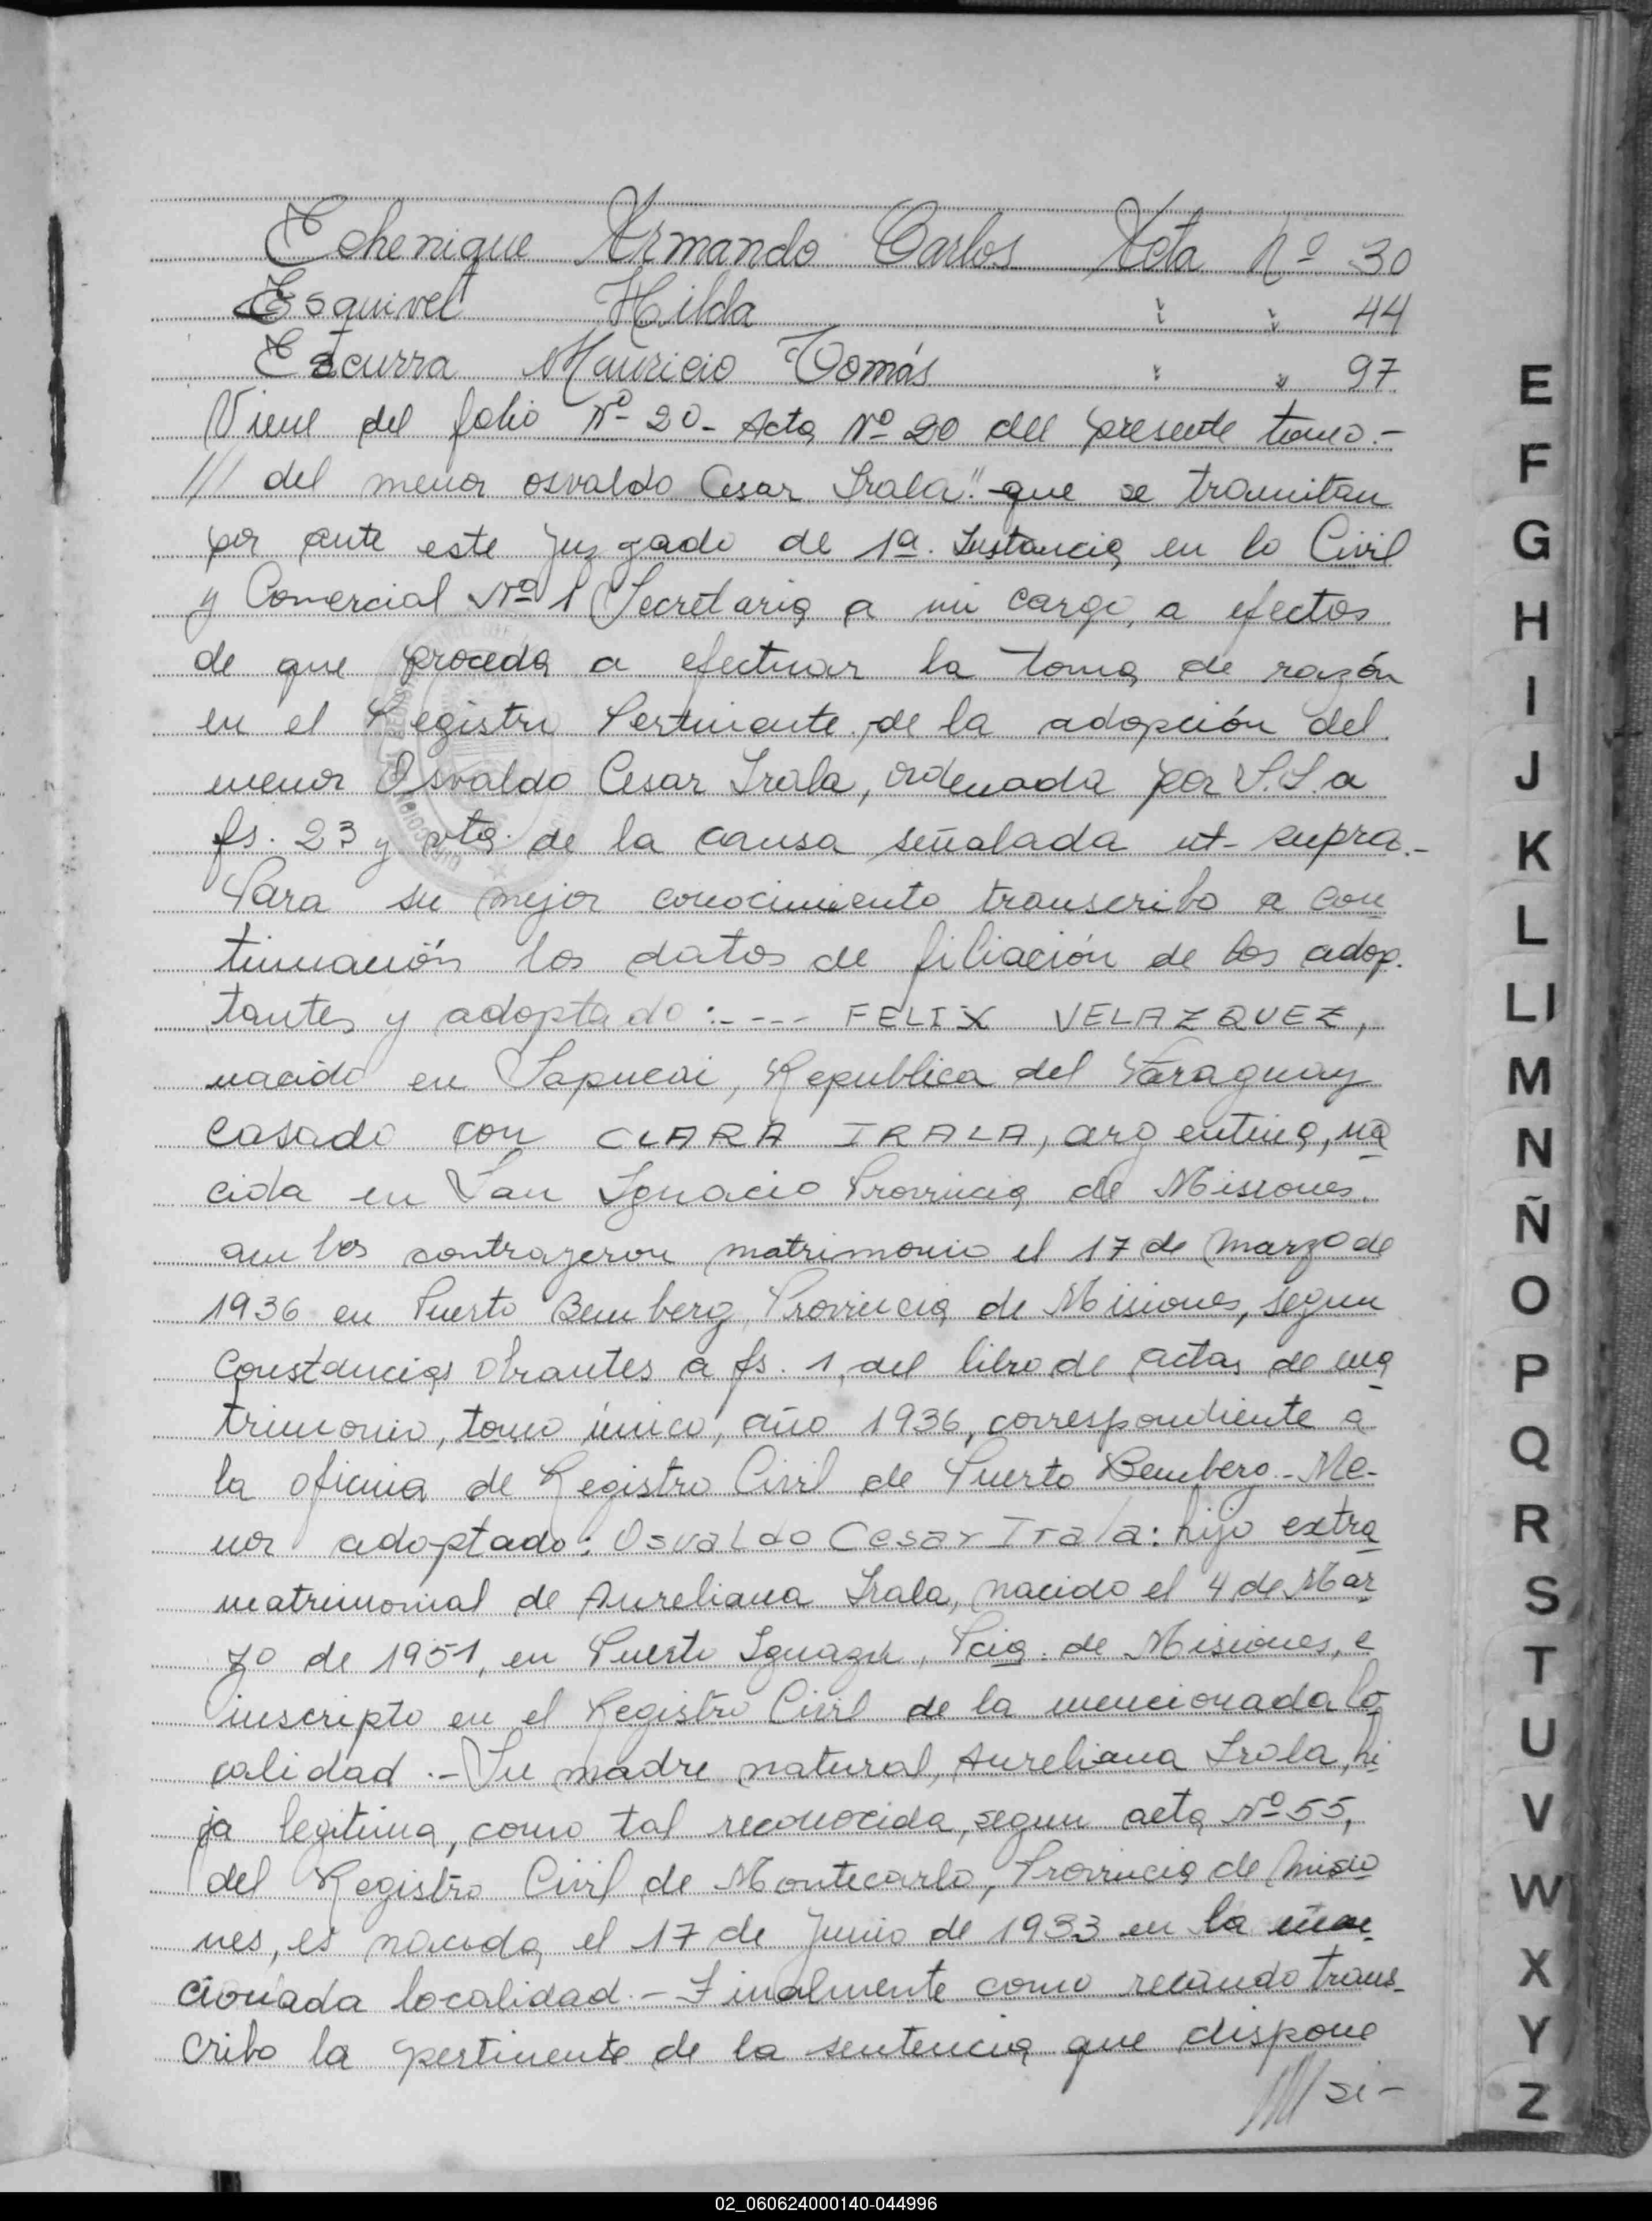 Echenique Armando Carlos Acta Nº 30
Esquivel Hilda " " 44
Escurra Mauricio Tomás " " 97
Viene del folio Nº 20- Acta Nº 20 del presente tomo.-
/// del menor osvaldo Cesar Irala".- que se tramitan
por ante este Juzgado de 1ª. Instancia en lo Civil
y Comercial Nº 1 Secretaria a mi cargo, a efectos
de que proceda a efectuar la toma de razón
en el Registro Pertinente, de la adopción del
menor Osvaldo Cesar Irala, ordenada por S.S. a
fs. 23 y vta. de la causa señalada ut- supra.-
Para su mejor conocimiento transcribo a con
tinuación los datos de filiación de los adop.
tantes y adoptado:---- FELIX VELAZQUEZ,
nacido en Sapucai, Republica del Paraguay
casado con CLARA IRALA, argentina, na
cida en San Ignacio Provincia de Misiones.
ambos contrajeron matrimonio el 17 de Marzo de
1936 en Puerto Bemberg, Provincia de Misiones, segun
constancias obrantes a fs. 1, del libro de actas de ma
trimonio, tomo único, año 1936, correspondiente a
la oficina de Registro Civil de Puerto Bemberg.- Me-
nor adoptado: Osvaldo Cesar Irala: hijo extra
matrimonial de Aureliana Irala, nacido el 4 de Mar
zo de 1951, en Puerto Iguazu, Pcia. de Misiones, e
inscripto en el Registro Civil de la mencionada lo
calidad.- Su madre natural, Aureliana Irala, hi
ja legitima, como tal reconocida, segun acta Nº 55,
del Registro Civil de Montecarlo, Provincia de Misio
nes, es nacida el 17 de Junio de 1933 en la men
cionada localidad.- Finalmente como recaudo trans-
cribo la pertinente de la sentencia que dispone
//// si-
E
F
G
H
I
J
K
L
Ll
M
N
Ñ
O
P
Q
R
S
T
U
V
W
X
Y
Z
02_060624000140-044996